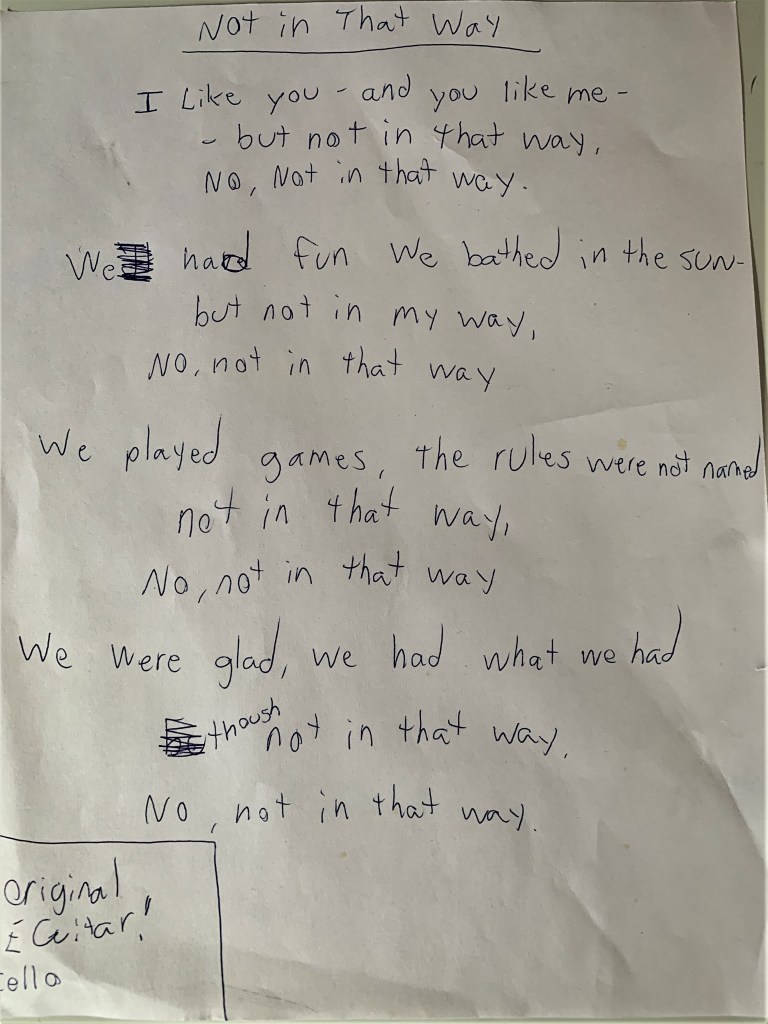 Not in That Way
I Like you - and you like me -
- but not in that way,
No, Not in that way.
We had fun We bathed in the sun-
but not in my way,
No, not in that way
We played games, the rules were not named
not in that way,
No, not in that way
We were glad, we had what we had
though not in that way,
No, not in that way.
original
É Guitar!
ello